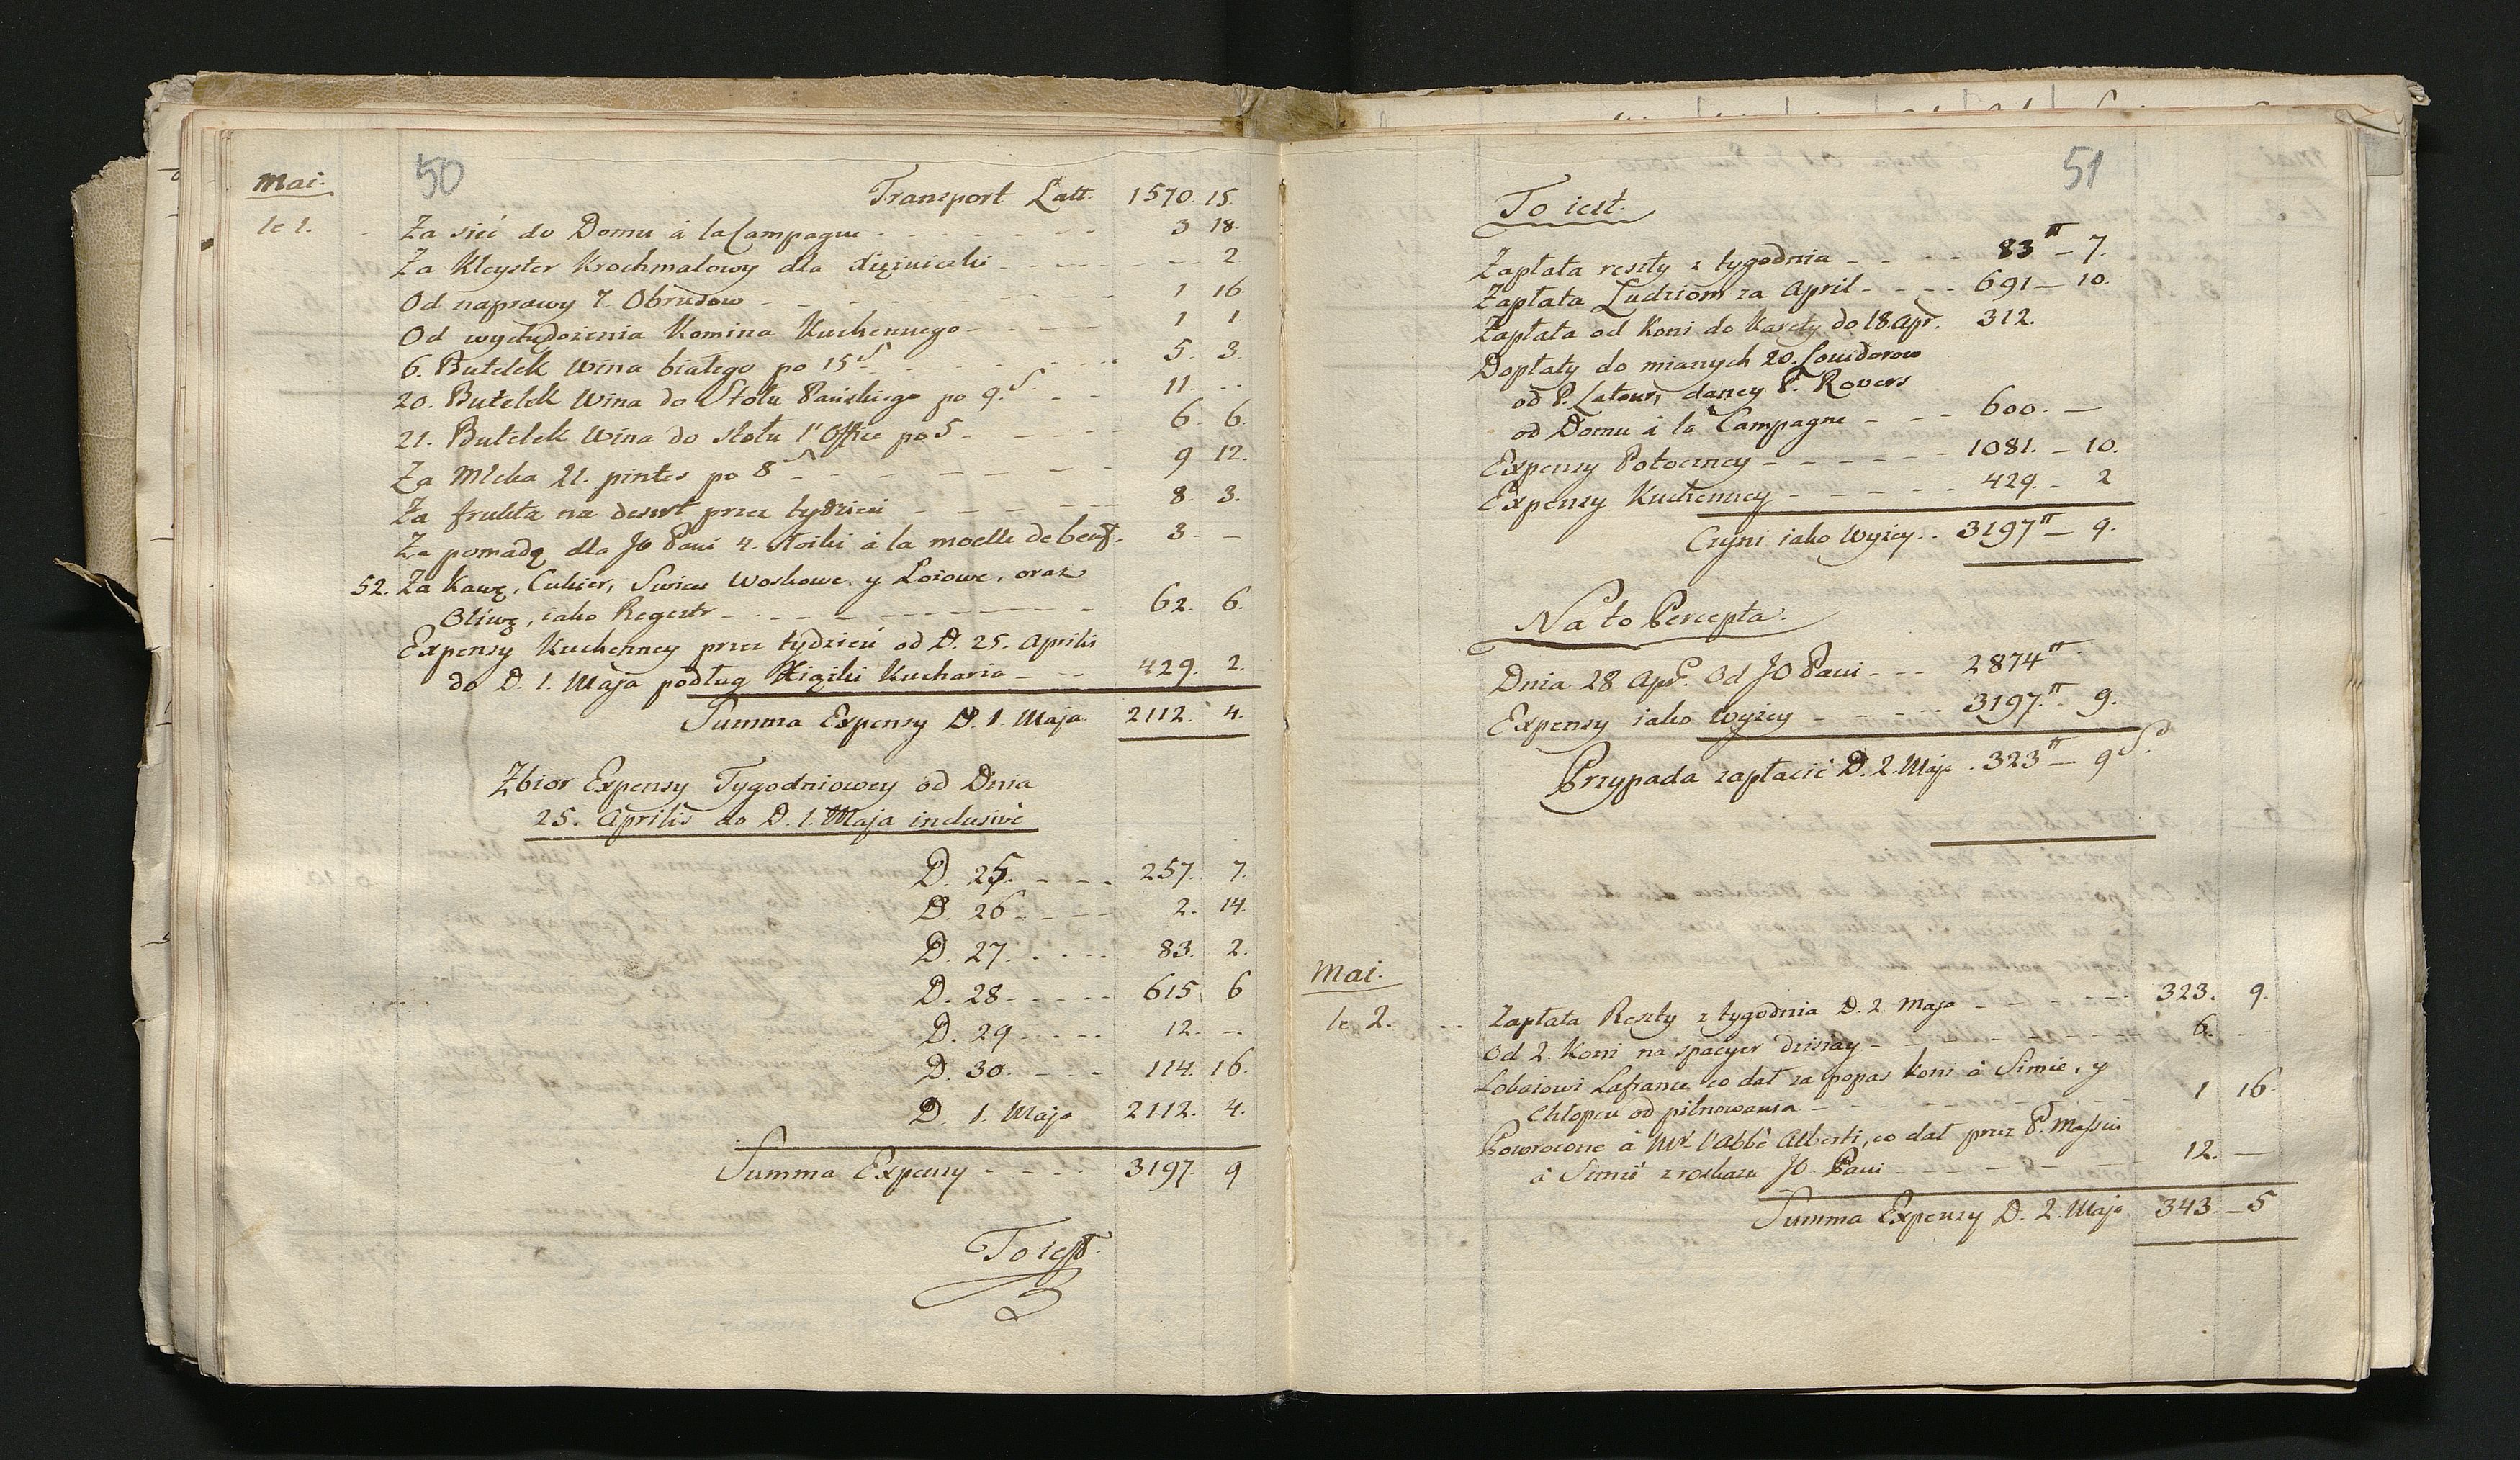 50
Mai.
Transport Latt. 1570. 15.
le 1. Za sieć do Domu à la Campagne - - - 3 18.
Za Kleyster Krochmalowy dla - - - 2.
Od naprawy 7. Obrusow - - - 1 16.
Od Komina Kuchennego - - - 1 1.
6. Butelek Wina białego po 15 s - - - 5. 3.
20. Butelek Wina do Stołu Pańskiego po 9. s. - - 11. --
21. Butelek Wina do stołu l'Office po 5 - - - 6. 6.
Za Mleka 21. pintes po 8 s - - - 9 12.
Za frukta na desert przez tydzień - - - 8. 3.
Za pomadę dla JO Pani 4. słoiki à la moelle de beuf. 3. -
52. Za Kawę, Cukier, Swiece Woskowe, y Loiowe, oraz
Oliwę, iako Regestr - - - 62. 6.
Expensy Kuchenney przez tydzień od D. 25. Aprilis
do D. 1. Maja podług Xiąźki Kucharza - - - 429. 2.
Summa Expensy D. 1. Maja 2112. 4.
Zbior Expensy Tygodniowey od Dnia
25. Aprilis do D. 1. Maja inclusivè
D. 25. - - - 257. 7.
D. 26 - - - 2. 14.
D. 27. - - - 83. 2.
D. 28 - - - 615 6
D. 29 - - - 12. -.
D. 30. - - - 114. 16.
D. 1. Maja 2112. 4.
Summa Expensy - - - 3197. 9
To iest.
51
To iest.
Zapłata reszty z tygodnia - - - 83 # - 7.
Zapłata Ludziom za April - - - 691 - 10.
Zapłata od Koni do Karety do 18. Apr. 312.
Dopłaty do mianych 20. Louidorow
od P. Latour, daney P. Rovers
od Domu à la Campagne - - - 600. -
Expensy Potoczney - - - 1081. - 10.
Expensy Kuchenney - - - 429. - 2
Czyni iako wyżey. . 3197 # - 9.
Na to Percepta:
Dnia 28 Apr. od JO Pani - - - 2874 #
Expensy iako wyżey - - - 3197. # 9.
Przypada zapłacić D. 2. Maja . 323 # - 9 s.
Mai.
le 2. . . Zapłata Reszty z tygodnia D. 2 Maja - - - 323. 9.
Od 2. Koni na spacyer dzisiay - - - 6. - -
Lokaiowi Lafrance co dał za popas koni à Simie, y
Chłopcu od pilnowania - - - 1 16.
Powrocone à Mr. l'Abbé Alberti, co dał przez P.
à Simié z roskazu JO Pani - - - 12. -
Summa Expensy D. 2. Maja 343. - 5